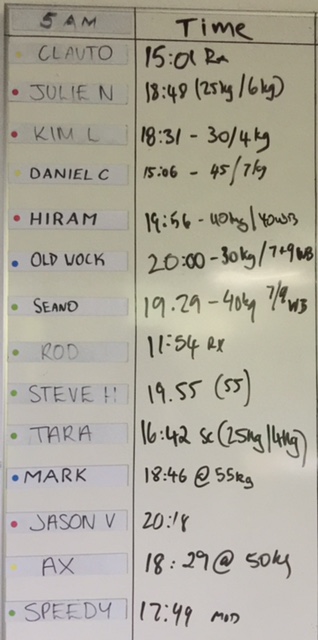 5 AM Time
CLAUTO 15:01 Rx
JULIE N 18:48 (25kg/6kg)
KIM L 18:31 - 30/4kg
DANIEL C 15:06 - 45/7kg
HIRAM 19:56 - 40kg/40WB
OLD JOCK 20:00 - 30kg/7+9WB
SEANO 19.29 - 40kg 7/9 WB
ROD 11:54 RX
STEVE H 19.55 (55)
TARA 16:42 Sc (25kg/4kg)
MARK 18:46 @ 55kg
JASON V 20:18
AX 18:29 @ 50kg
SPEEDY 17:49 MOD